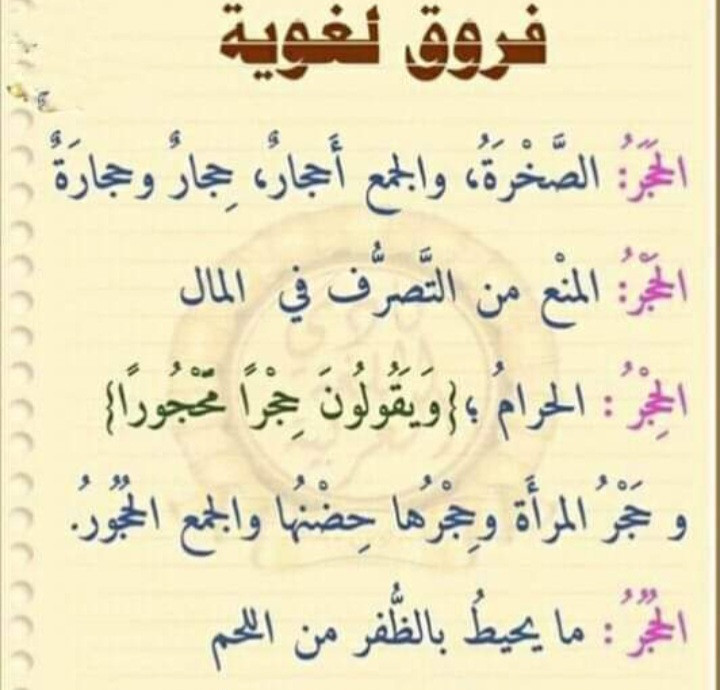 فروق لغوية
الحَجَرُ: الصَّخْرَةُ، والجمع أَحجارٌ، حِجارٌ وحجارَةٌ
الحَجْرُ: المنْع من التَّصرُّف في المال
الحِجْرُ: الحرامُ ؛{وَيَقُولُونَ حِجْراً مَّحْجُورًا}
و حَجْرُ المرأَة وحِجْرُها حِضْنُها والجمع الحُجُورُ.
الحُجْرُ: ما يحيطُ بالظُّفر من اللحم